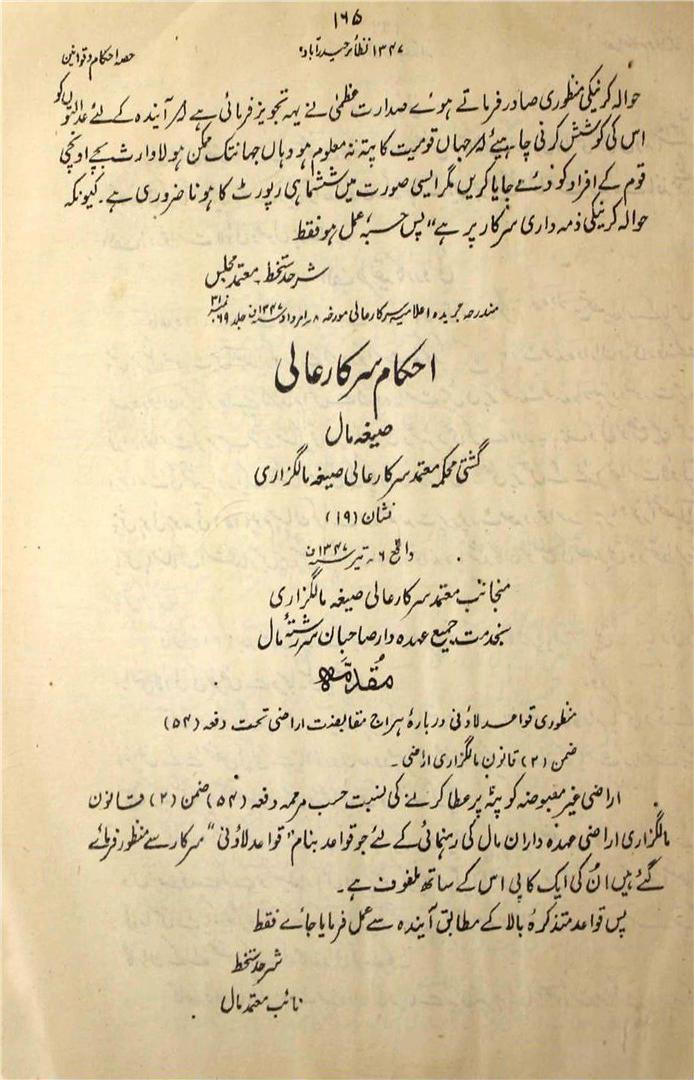 ۱۶۵
حصہ احکام و قوانین
۱۳۴۷ نظائر حیدرآباد
حوالہ کرنیکی منظوری صادر فرماتے ہوے صدارت عظمیٰ نے یہہ تجویز فرمائی ہے کہ آیندہ کے لئے عدالتوں کو
اس کی کوشش کرنی چاہیئے کہ جہاں قومیت کا پتہ نہ معلوم ہو وہاں جہانتک ممکن ہو لاوارث بچے اونچی
قوم کے افراد کو دئے جایا کریں مگر ایسی صورت میں ششماہی رپورٹ کا ہونا ضروری ہے۔ کیونکہ
حوالہ کرنیکی ذمہ داری سرکار پر ہے" پس حسبہٗ عمل ہو فقط
شرحدستخط۔ معتمد مجلس
مندرجہ جریدہ اعلامیہ سرکار عالی مورخہ ۸ ؍امرداد سنہ ۱۳۴۷ ف جلد ۶۹ نمبر ۳۱
احکام سرکار عالی
صیغہ مال
گشتی محکمہ معتمد سرکار عالی صیغہ مالگزاری
نشان (۱۹)
واقع ۶۔ تیر سنہ ۱۳۴۷ ف
منجانب معتمد سرکار عالی صیغہ مالگزاری
بخدمت جمیع عہدہ دار صاحبان سررشتۂ مال
مقدمہ
منظوری قواعد لاؤنی دربارۂ ہراج مقابضت اراضی تحت دفعہ (۵۴)
ضمن (۲) قانون مالگزاری اراضی۔
اراضی غیر مقبوضہ کو پٹہ پر عطا کرنے کی نسبت حسب مرممہ دفعہ (۵۴) ضمن (۲) قانون
مالگزاری اراضی عہدہ داران مال کی رہنمائی کے لئے جو قواعد بنام "قواعد لاؤنی" سرکار سے منظور فرمائے
گئے ہیں اُن کی ایک کاپی اس کے ساتھ ملفوف ہے۔
پس قواعد متذکرۂ بالا کے مطابق آیندہ سے عمل فرمایا جاے فقط
شرحدستخط
نائب معتمد مال